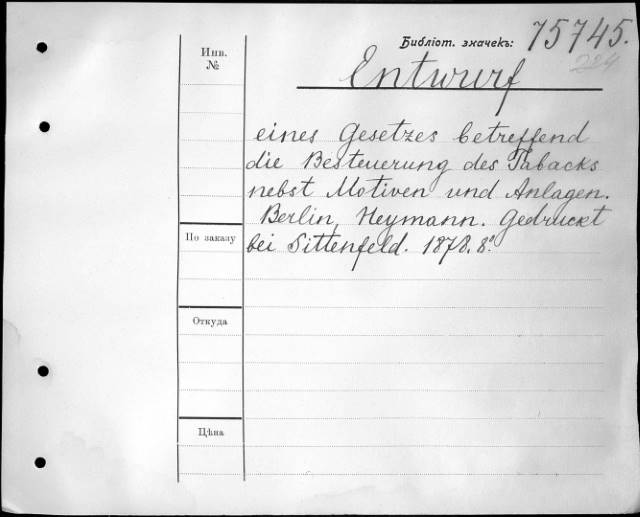 Библіот. значекъ: 75745.
224
Инв.
№
Entwurf
eines Gesetzes betreffend
die Besteuerung des Tabacks
nebst Motiven und Anlagen.
Berlin, Heymann. Gedruckt
По заказу
bei Sittenfeld. 1878. 8º.
Откуда
Цѣна